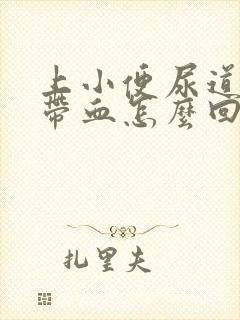 上小便尿道
帶血怎麼回
扎里夫